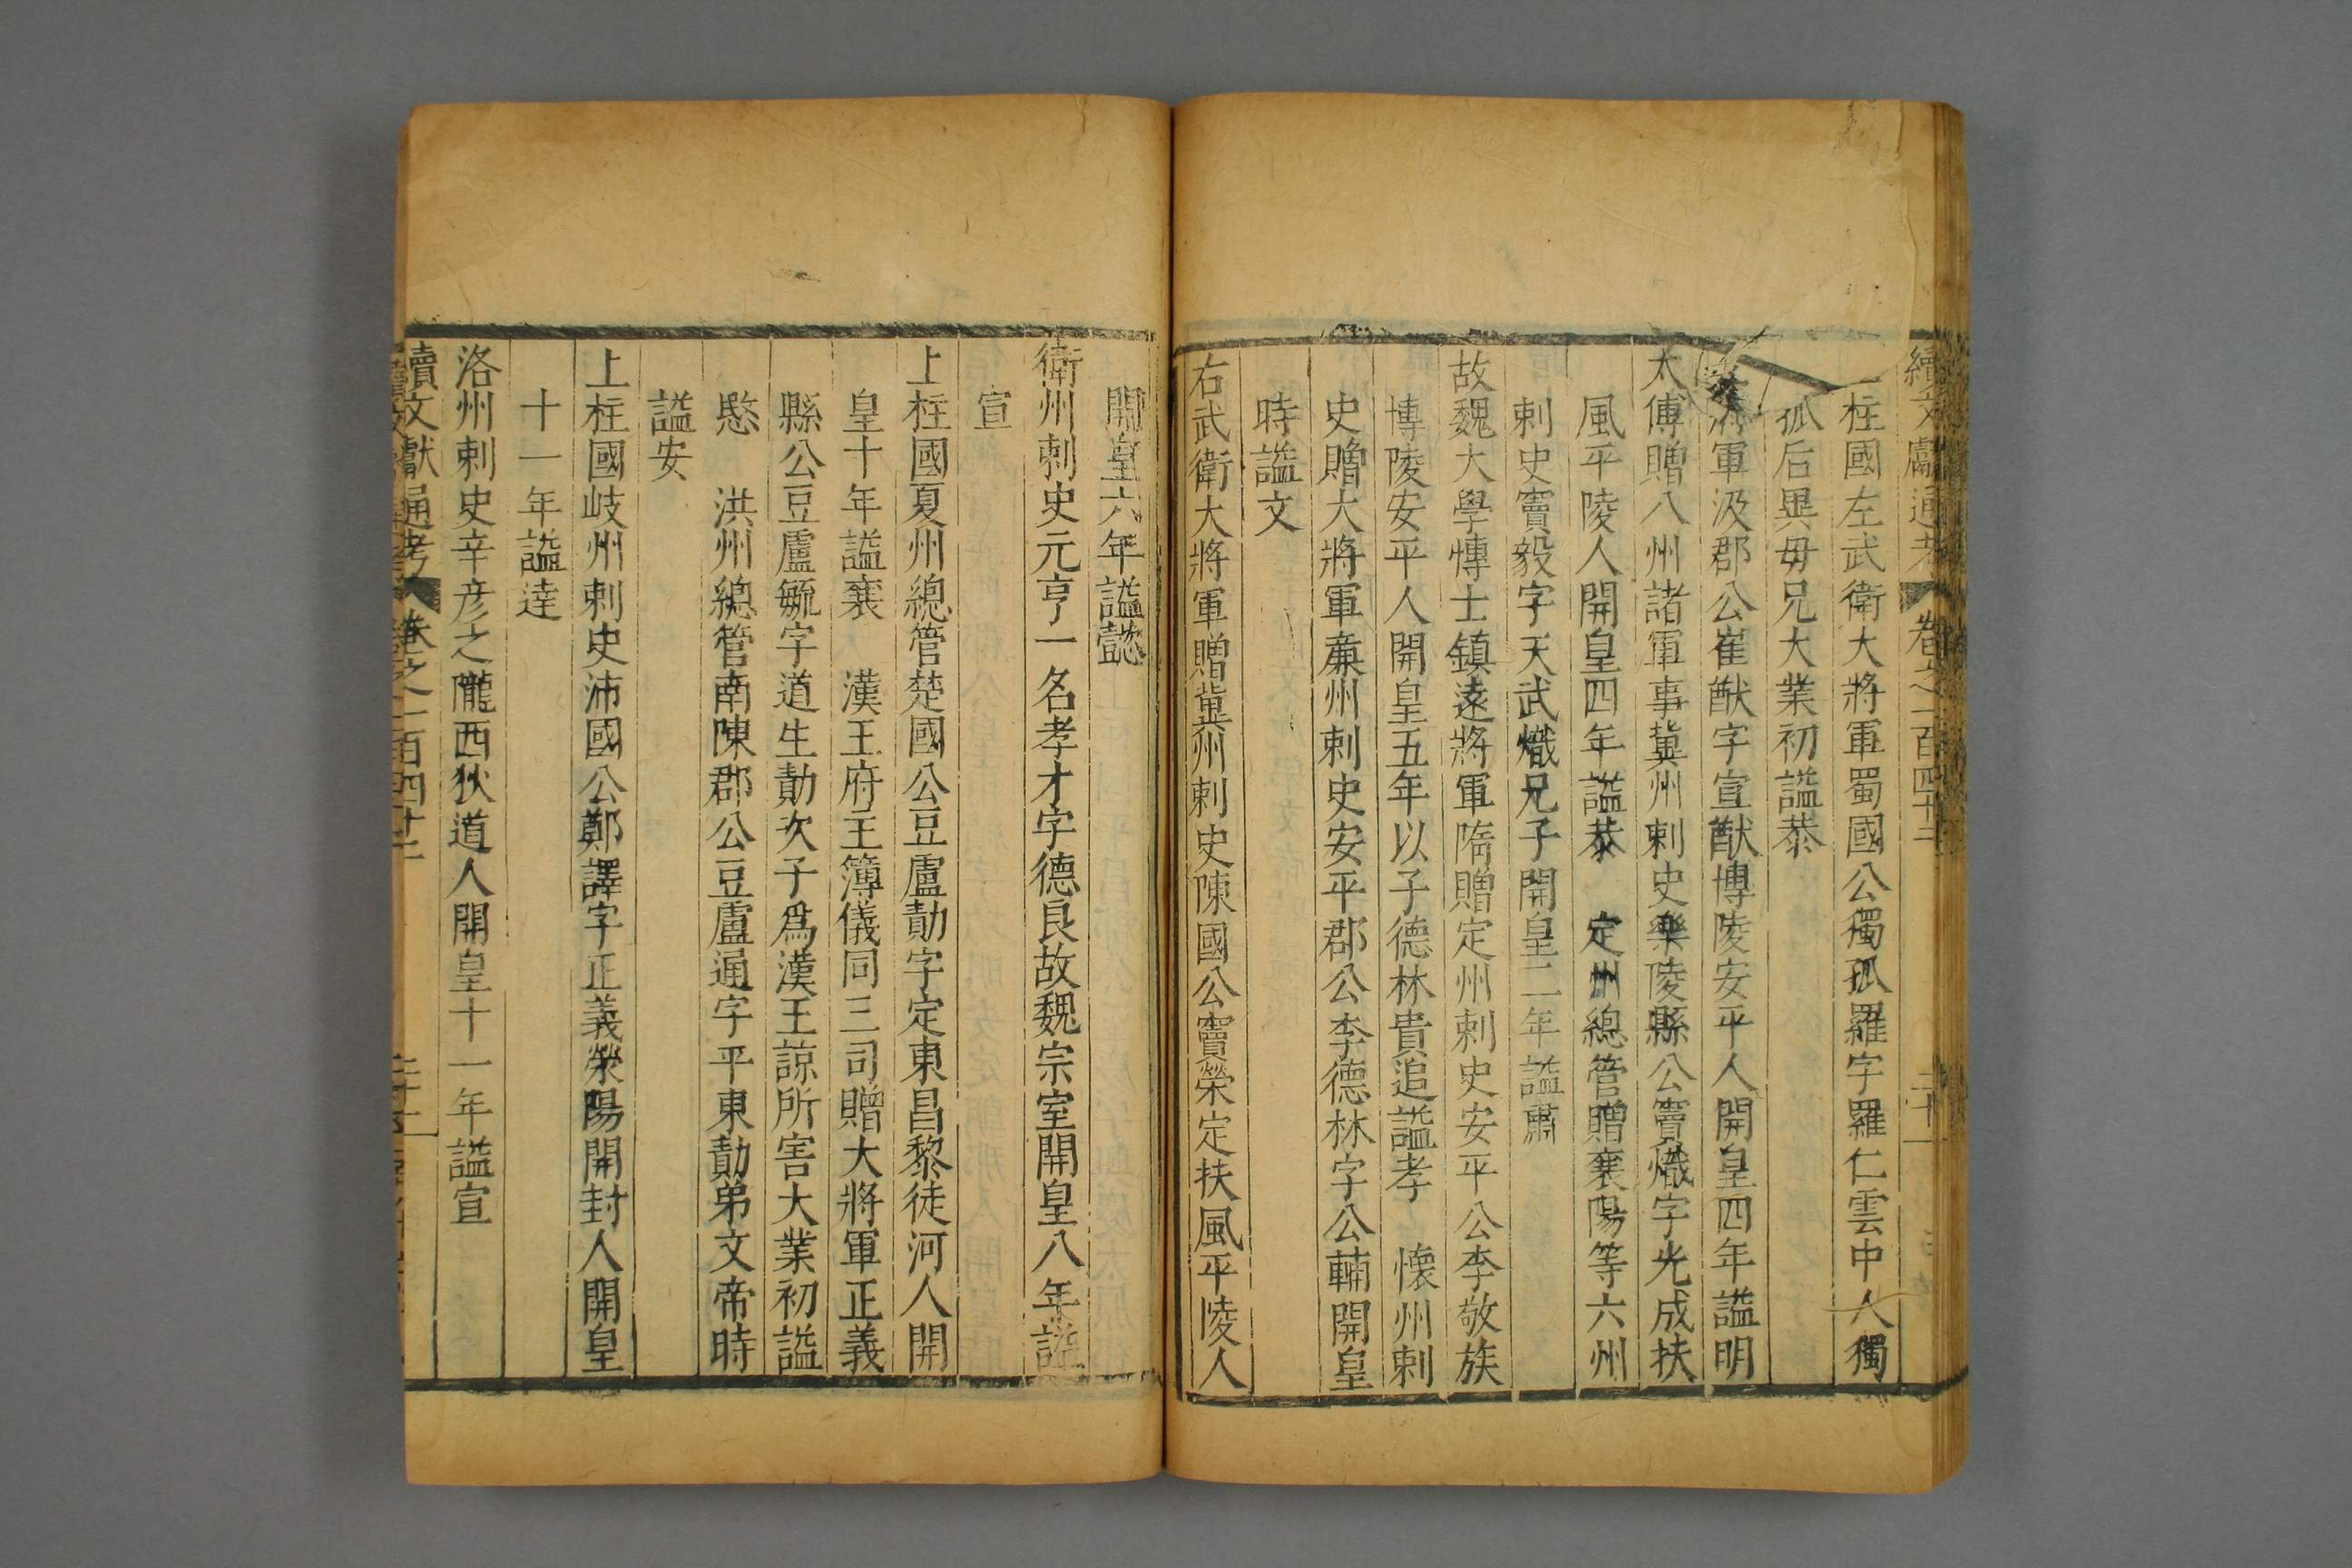 續文獻通考 卷之一百四十三 三十一
柱國左武衛大將軍蜀國公獨孤羅字羅仁雲中人獨
孤后異毋兄大業初謚恭
將軍汲郡公崔猷字宣猷博陵安平人開皇四年謚明
太傅贈八州諸軍事冀州刺史樂陵縣公竇熾字光成扶
風平陵人開皇四年謚恭 定州總管贈襄陽等六州
刺史竇毅字天武熾兄子開皇二年謚肅
故魏大學愽士鎮遠將軍隋贈定州刺史安平公李敬族
博陵安平人開皇五年以子德林貴追謚孝 懷州刺
史贈大將軍廉州刺史安平郡公李德林字公輔開皇
時謚文
右武衛大將軍贈冀州刺史陳國公竇榮定扶風平陵人
開皇六年謚懿
衛州刺史元亨一名孝才字德良故魏宗室開皇八年謚
宣
上柱國夏州總管楚國公豆盧勣字定東昌黎徒河人開
皇十年謚襄 漢王府王簿儀同三司贈大將軍正義
縣公豆盧毓字道生勣次子爲漢王諒所害大業初謚
愍 洪州總管南陳郡公豆盧通字平東勣弟文帝時
謚安
上柱國岐州刺史沛國公鄭譯字正義滎陽開封人開皇
十一年謚達
洛州刺史辛彦之隴西狄道人開皇十一年謚宣
續文獻通考 卷之一百四十三